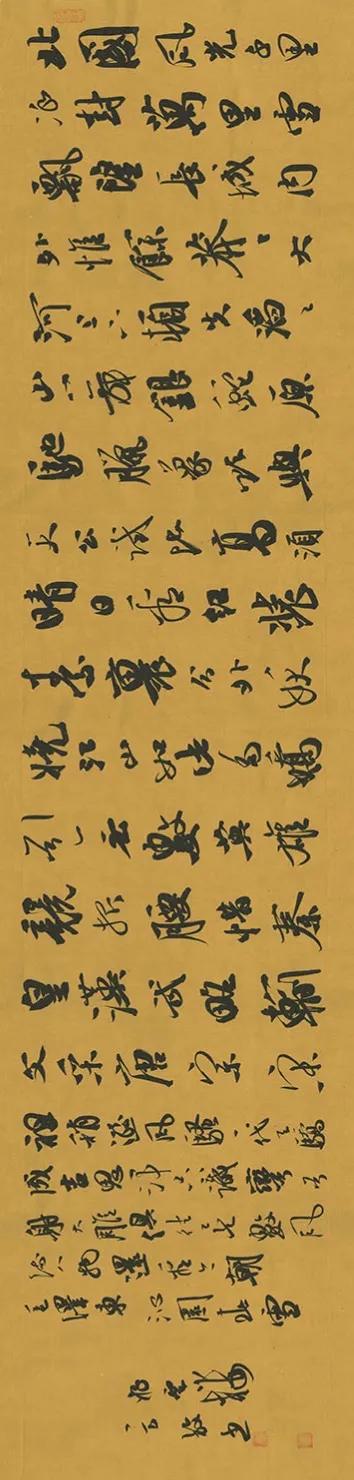 北國風光千里
冰封萬里雪
飄望長城內
外惟餘莽〻大
河上下頓失滔〻
山舞銀蛇原
馳臘象欲與
天公試比高須
晴日看紅裝
素裹分外妖
嬈江山如此多嬌
引無數英雄
競折腰惜秦
皇漢武略輸
文采唐宗宋
祖稍遜風騷一代天驕
成吉思汗只識彎弓
射大雕俱往矣數風
流人物還看今朝
毛澤東沁園春雪